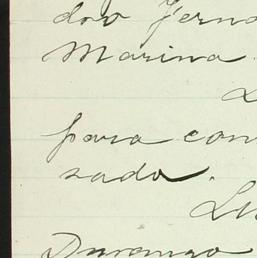 dro Ferna
Marina.
L
para con
sado.
Lu
Durango